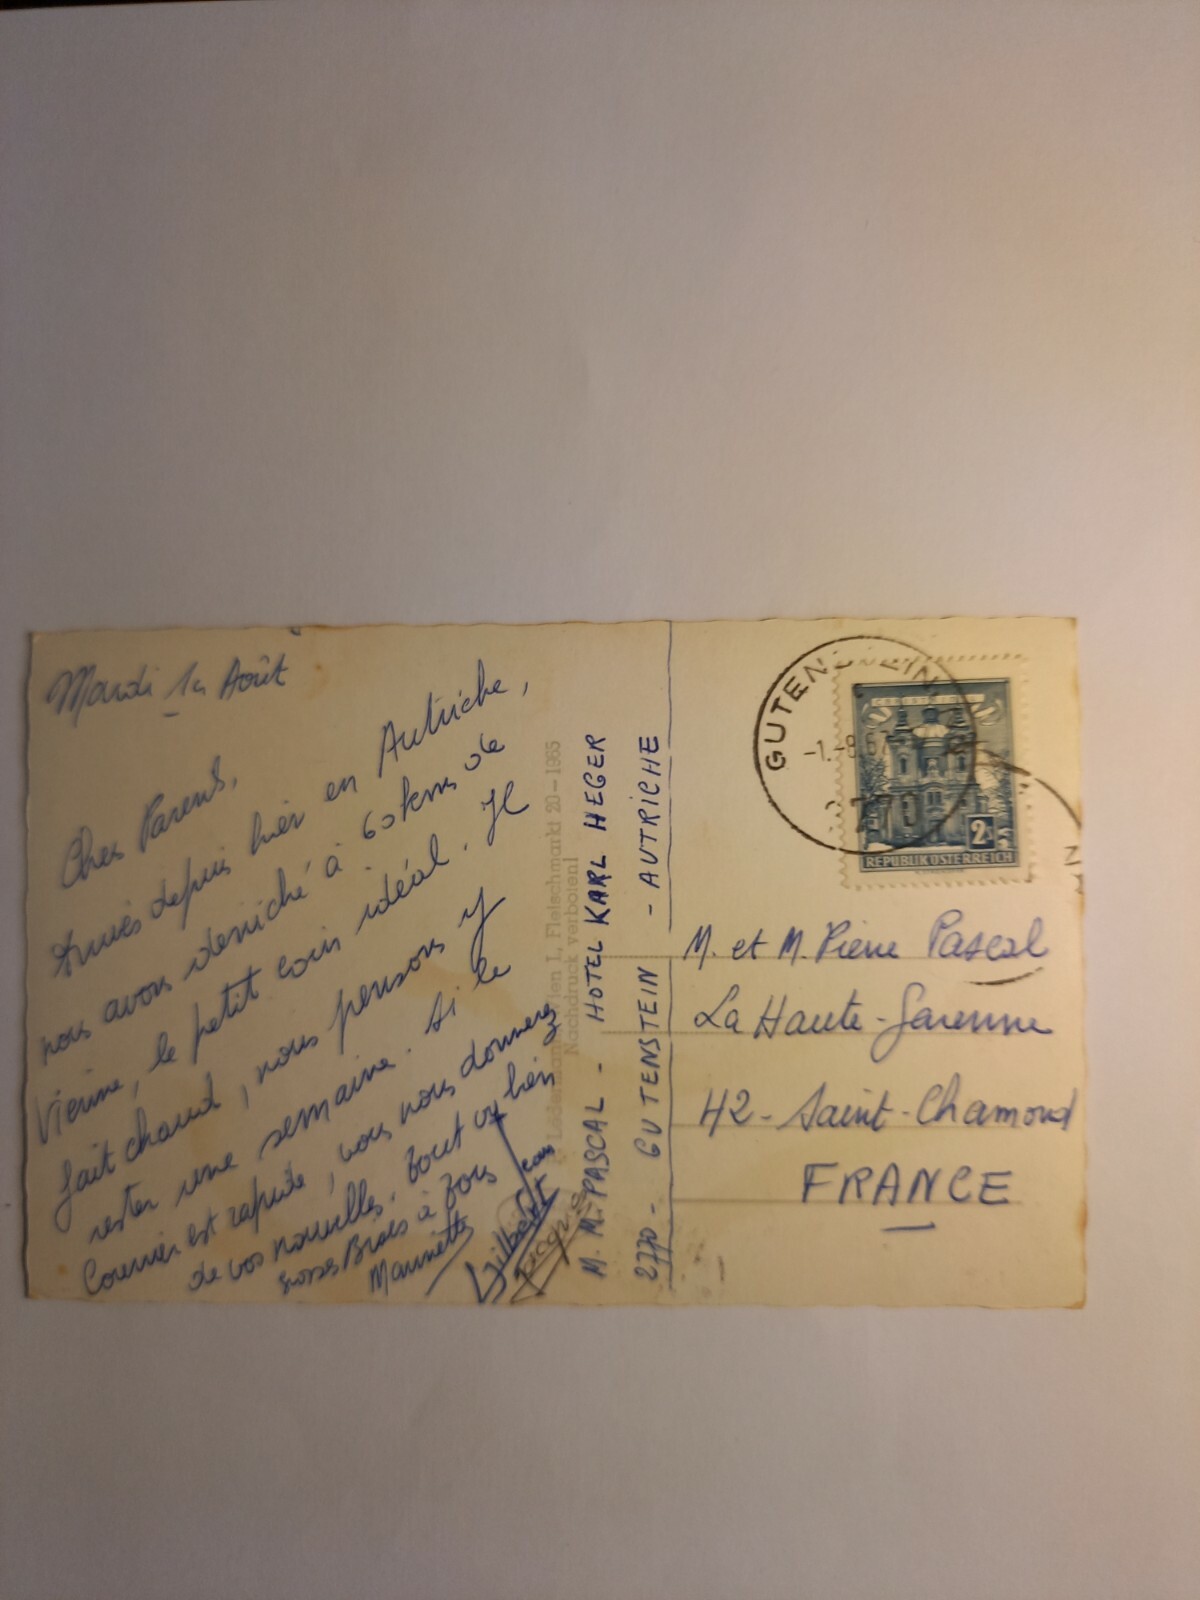 Mardi 1er Août
Chers Parents,
Arrivés depuis hier en Autriche,
nous avons déniché à 60 kms de
Vienne, le petit coin idéal. Il
fait chaud, nous pensons y
rester une semaine. Si le
Courrier est rapide, vous nous donnerez
de vos nouvelles. Tout va bien
grosses Bises à Tous
Marinette
Gilbert
Wien I, Fleischmarkt 20 - 1965
Nachdruck verboten!
M. M. PASCAL - HOTEL KARL HEGER
2770 - GUTENSTEIN - AUTRICHE
GUTENSTEIN
-1.-8.67
2
REPUBLIK ÖSTERREICH
M. et M. Pierre Pascal
La Haute-Garenne
42 - Saint-Chamond
FRANCE